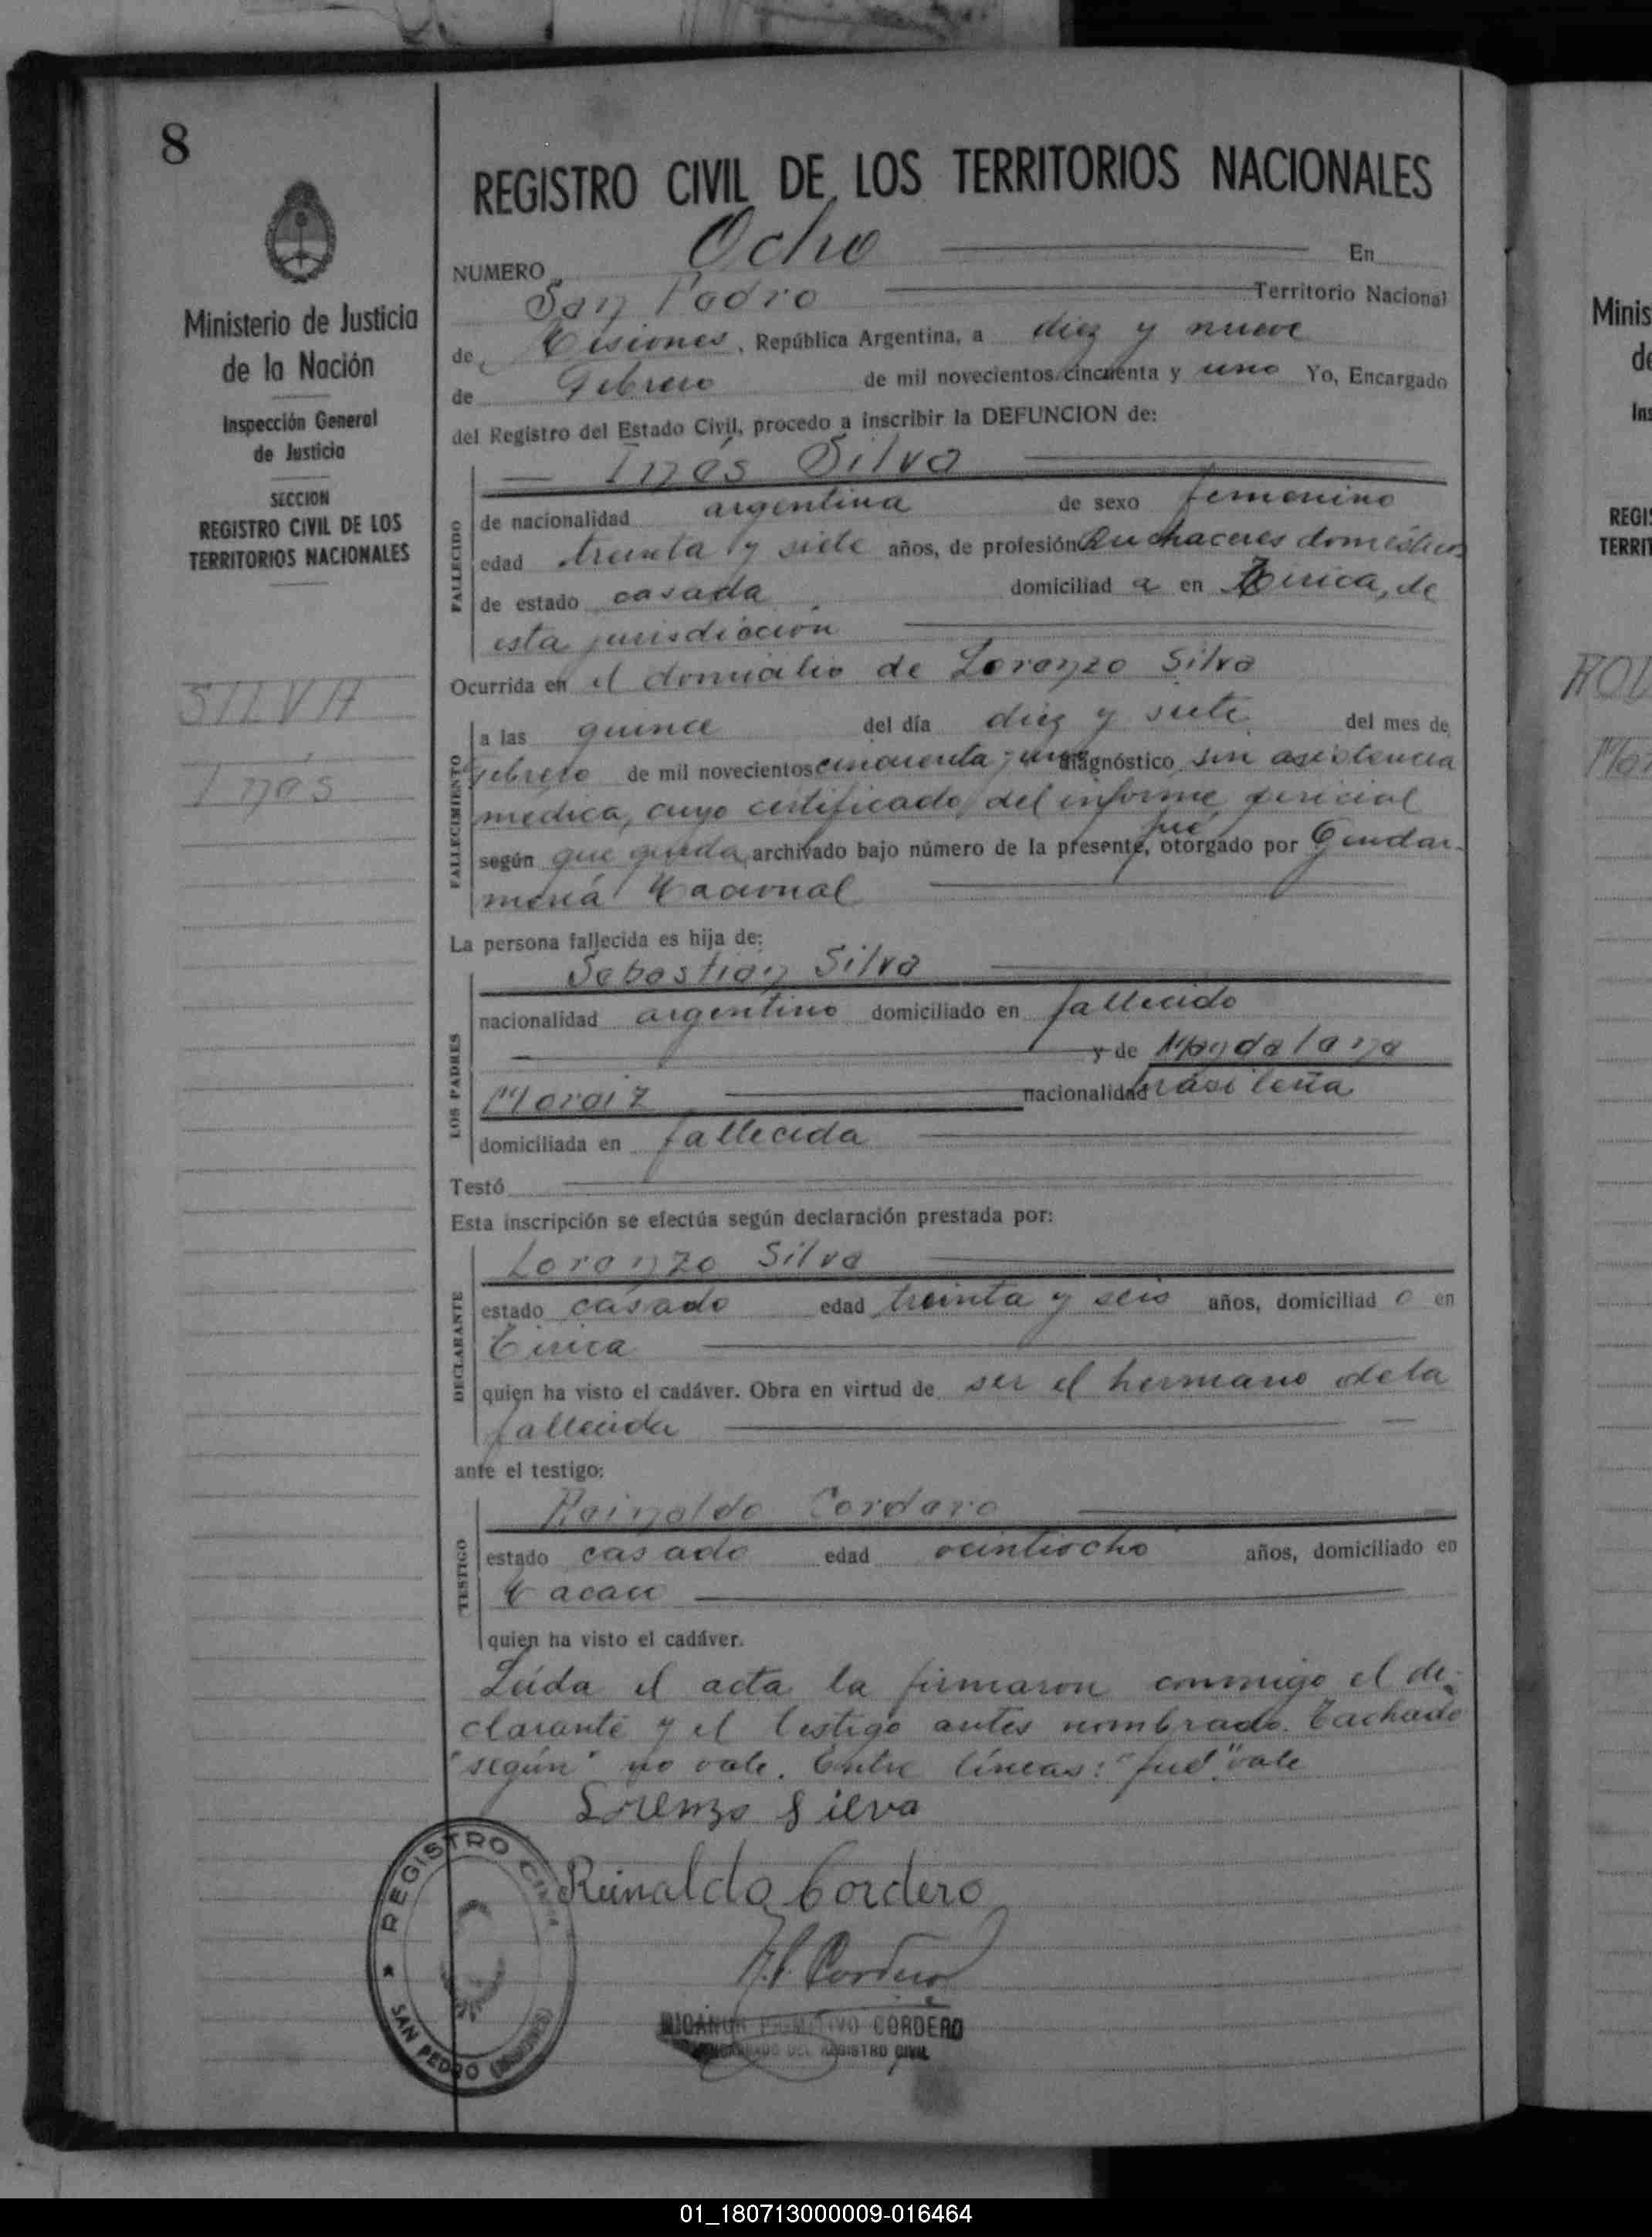 8
Ministerio de Justicia
de la Nación
Inspección General
de Justicia
SECCION
REGISTRO CIVIL DE LOS
TERRITORIOS NACIONALES
SILVA
Inés
REGISTRO CIVIL DE LOS TERRITORIOS NACIONALES
NUMERO Ocho En
San Pedro Territorio Nacional
de Misiones, República Argentina, a diez y nueve
de Febrero de mil novecientos cincuenta y uno Yo, Encargado
del Registro del Estado Civil, procedo a inscribir la DEFUNCION de:
Inés Silva
FALLECIDO
de nacionalidad argentina de sexo femenino
edad treinta y siete años, de profesión Quehaceres domésticos
de estado casada domiciliad a en Tirica, de
esta jurisdicción
Ocurrida en el domicilio de Lorenzo Silva
FALLECIMIENTO
a las quince del día diez y siete del mes de
febrero de mil novecientos cincuenta y uno diagnóstico sin asistencia
médica, cuyo certificado del informe pericial
según que queda archivado bajo número de la presente, fué otorgado por Gendar-
mería Nacional
La persona fallecida es hija de:
LOS PADRES
Sebastian Silva
nacionalidad argentino domiciliado en fallecido
y de Magdalena
Moraiz nacionalidad brasileña
domiciliada en fallecida
Testó
Esta inscripción se efectúa según declaración prestada por:
DECLARANTE
Lorenzo Silva
estado casado edad treinta y seis años, domiciliad o en
Tirica
quien ha visto el cadáver. Obra en virtud de ser el hermano de la
fallecida
ante el testigo:
TESTIGO
Reinaldo Cordero
estado casado edad veintiocho años, domiciliado en
quien ha visto el cadáver.
Leída el acta la firmaron conmigo el de-
clarante y el testigo antes nombrado. Tachado
"según" no vale. Entre líneas: "fué" vale
Lorenzo Silva
Reinaldo Cordero
Cordero
CORDERO
DEL REGISTRO CIVIL
REGISTRO CIVIL
SAN PEDRO (MISIONES)
Minis
de
Ins
REGIS
TERRIT
01_180713000009-016464